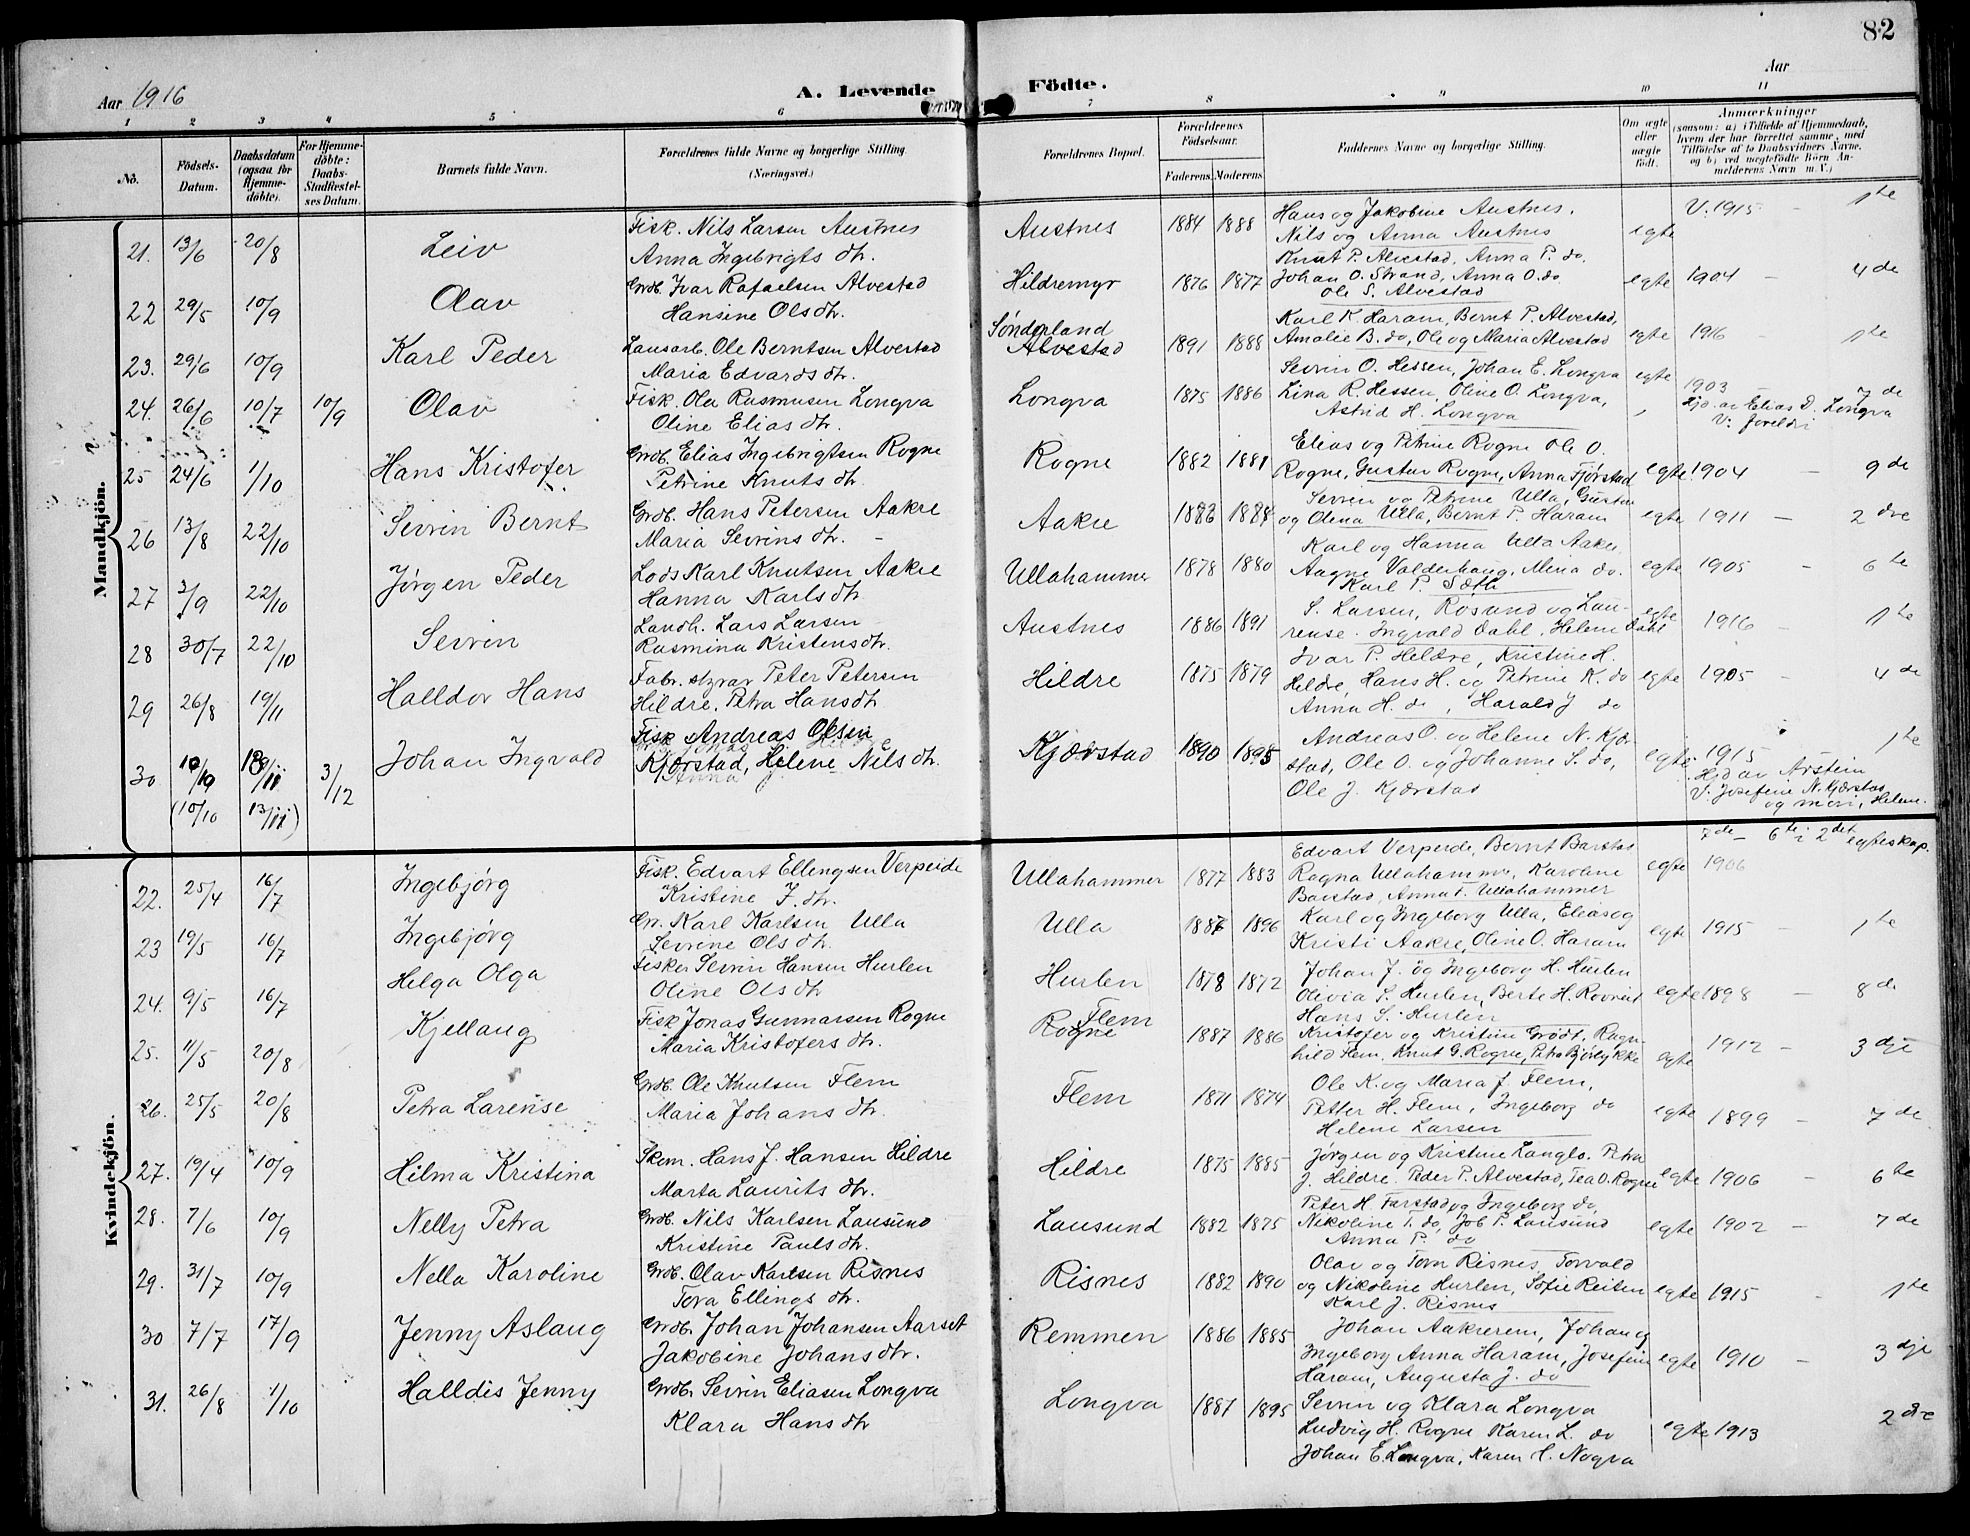 82
Aar 1916
A. Levende
Födte.
Aar
1 2 3 4 5 6 7 8 9 10 11
No.
Födsels-Datum.
Daabsdatum (ogsaa for Hjemme-döbte).
For Hjemme-döbte: Daabs-Stadfæstel-ses Datum.
Barnets fulde Navn.
Forældrenes fulde Navne og borgerlige Stilling. (Næringsvei.)
Forældrenes Bopæl.
Forældrenes Födselsaar.
Faderens. Moderens.
Faddernes Navne og borgerlige Stilling.
Om ægte eller uægte födt.
Anmærkninger
(saasom: a) i Tilfælde af Hjemmedaab, hvem der har forrettet samme, med Tilföielse af to Daabsvidners Navne, og b) ved uægtefödte Börn An-melderens Navn m. V.)
Mandkjön.
21. 13/6 20/8 Leiv
Fisk. Nils Larsen Austnes
Anna Ingebrigts dtr.
Austnes 1884 1888
Hans og Jakobine Austnes.
Nils og Anna Austnes
Knut P. Alvestad, Anna P. do.
egte V. 1915 - 1te
22 29/5 10/9 Olav
Grdb. Ivar Rafaelsen Alvestad
Hansine Olsdtr.
Hildremyr 1876 1877
Johan O. Strand, Anna O. do
Ole S. Alvestad
egte 1904 - 4de
23. 29/6 10/9 Karl Peder
Lausarb. Ole Berntsen Alvestad
Maria Edvardsdtr.
Sönderland
Alvestad 1891 1888
Karl K. Haram, Bernt P. Alvestad,
Amalie B. do, Ole og Maria Alvestad
egte 1916 - 1te
24. 26/6 10/7 10/9 Olav
Fisk. Ola Rasmusen Longva
Oline Elias dtr.
Longva 1875 1886
Sevrin O. Hessen, Johan E. Longva
Lina R. Hessen, Oline O. Longva,
Astrid H. Longva
egte 1903 - 7de
Hjd. av Elias D. Longva
V. foreldri
25 24/6 1/10 Hans Kristofer
Grdb. Elias Ingebrigtsen Rogne
Petrine Knuts dtr.
Rogne 1882 1881
Elias og Petrine Rogne Ole O.
Rogne, Gustav Rogne, Anna Fjørstad
egte 1904 - 9de
26 13/8 22/10 Sevrin Bernt
Grdb. Hans Petersen Aakre
Maria Sevrins dtr. -
Aakre 1883 1884
Sevrin og Petrine Ulla, Gustav
og Olena Ulla, Bernt P. Haram
egte 1911 - 2dre
27 3/9 22/10 Jørgen Peder
Lods Karl Knutsen Aakre
Hanna Karlsdtr
Ullahammer 1878 1880
Karl og Hanna Ulla Aakre.
Aagne Valderhaug, Mena do.
Karl P. Sæth
egte 1905 - 6te
28 30/7 22/10 Sevrin
Landh. Lars Larsen
Rasmina Kristensdtr.
Austnes 1886 1891
S. Larsen, Rosund og Lau-
rense. Ingvald Dahl, Helene Dahl
egte 1916 - 1te
29 26/8 19/11 Halldor Hans
Fabr. styrar Peter Petersen
Hildre, Petra Hansdtr
Hildre 1875 1879
Ivar P. Hildre, Kristine H.
Hildre, Hans H. og Petrine K. do
Anna H. do, Harald J do
egte 1905 - 4de
30 10/10 18/11 3/12 Johan Ingvald
(10/10 13/11)
Fisk Andreas Olsen
Kjærstad, Helene Nils dtr.
Kjærstad 1890 1895
Andreas O. og Helene N. Kjær
stad, Ole O. og Johanne S. do,
Ole J. Kjærstad
egte 1915 - 1te
Hjd av Arstein
V. Josefine N. Kjærstad
og mori, Helene.
Kvindekjön.
22. 25/4 16/7 Ingebjørg
Fisk. Edvart Ellengsen Verpeide
Kristine J. dtr.
Ullahammer 1877 1883
Edvart Verpeide, Bernt Barstad
Ragna Ullahammer, Karoline
Barstad, Anna T. Ullahammer
egte 1906
7de - 6te i 2det egteskap.
23 19/5 16/7 Ingebjørg
Gr. Karl Karlsen Ulla
Sevrine Olsdtr.
Ulla 1886 1896
Karl og Ingeborg Ulla, Elias og
Kristi Aakre, Oline O. Haram
egte 1915 - 1te
24. 9/5 16/7 Helga Olga
Fisker Sevrin Hansen Hurlen
Oline Olsdtr
Hurlen 1878 1872
Johan J. og Ingeborg H. Hurlen
Olivia S. Hurlen, Berte H. Rovneid
Hans S. Hurlen
egte 1898 - 8de
25. 11/5 20/8 Kjellaug
Fisk Jonas Gunnarsen Rogne
Maria Kristofers dtr.
Flem
Rogne 1887 1886
Kristofer og Kristine Grødt, Ragn-
hild Flem, Knut G. Rogne, Petra Bjørlykke
egte 1912 - 3dje
26. 25/5 20/8 Petra Larense
Grdb. Ole Knutsen Flem
Maria Johans dtr.
Flem 1871 1874
Ole K. og Maria J. Flem,
Petter H. Flem, Ingeborg do
Helene Larsen
egte 1899 - 7de
27. 19/4 10/9 Hilma Kristina
Skom. Hans J. Hansen Hildre
Marta Laurits dtr.
Hildre 1875 1885
Jørgen og Kristine Langlo. Petra
J. Hildre. Peder P. Alvestad, Tea O. Rogne
egte 1906 - 6te
28. 7/6 10/9 Nelly Petra
Grdb. Nils Karlsen Lausund
Kristine Pauls dtr.
Lausund 1882 1875
Peter H. Farstad og Ingeborg do,
Nikoline T. do, Job P. Lausund
Anna P. do
egte 1902 - 7de
29. 31/7 10/9 Nella Karoline
Grdb. Olav Karlsen Risnes
Tora Ellings dtr.
Risnes 1882 1890
Olav og Tora Risnes, Torvald
og Nikoline Hurlen, Sofie Reiten
Karl J. Risnes
egte 1915 - 1te
30 7/7 17/9 Jenny Aslaug
Grdb. Johan Johansen Aarset
Jakobine Johansdtr.
Remmen 1886 1885
Johan Aakrerem, Johan og
Ingeborg Anna Haram, Josefine
Haram, Augusta J. do
egte 1910 - 3dje
31. 26/8 1/10 Halldis Jenny
Grdb. Sevrin Eliasen Longva
Klara Hansdtr
Longva 1887 1895
Sevrin og Klara Longva
Ludvig H. Rogne Karen L. do
Johan E. Longva, Karen H. Nogva
egte 1913 2dre